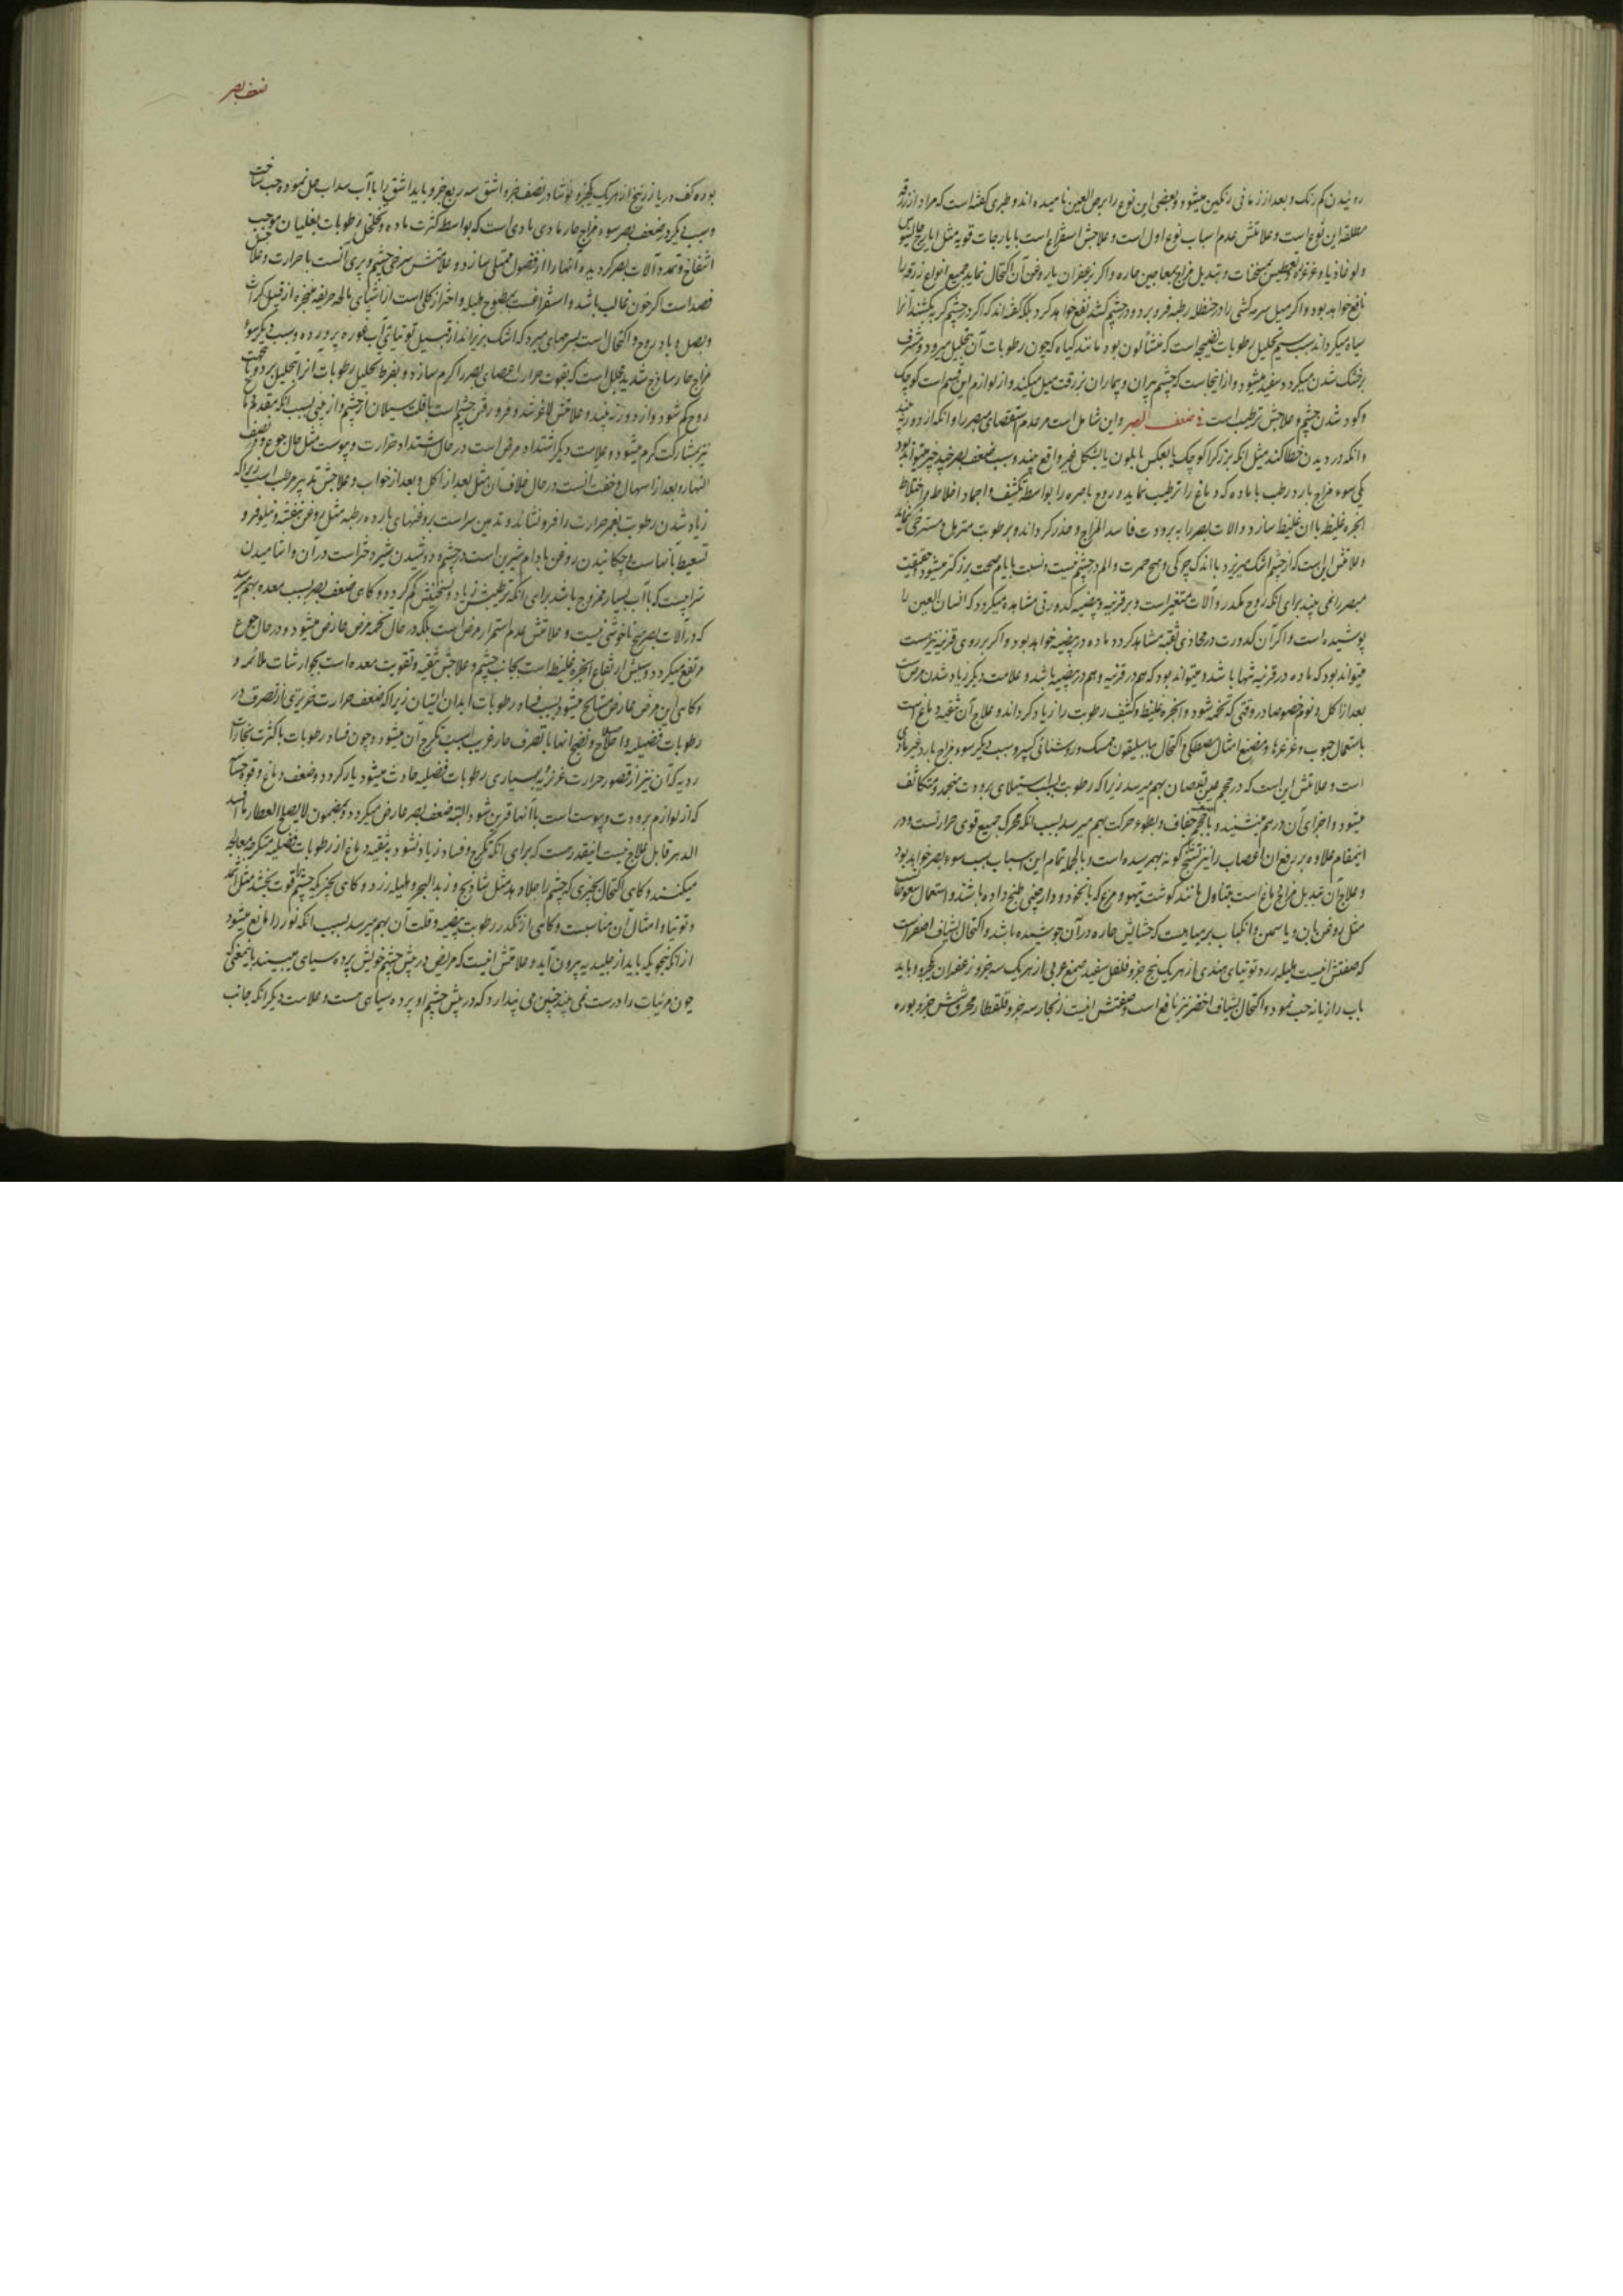 روئیدن کم رنک و بعد از زمانی رنکین میشود و بعضی این نوع را برص العین نامیده اند و طبری کفته است که مراد از زرقه
مطلقه این نوع است و علامتش عدم اسباب نوع اول است و علاجش استفراغ است بایارجات قویه مثل ایارج جالینوس
ولوغاذیا و غرغره و تعطیس بمسخنات و تبدیل مزاج بمعاجین حاره و اکر بزعفران باروغن آن اکتحال نماید جمیع انواع زرقه را
نافع خواهد بود و اکر میل سرمه کشی را در حنظله رطبه فرو برد و در چشم کشد نفع خواهد کرد بلکه کفته اند که اکر در چشم کربه بکشند انرا
سیاه میکرداند سبب سیم تحلیل رطوبات نضیجه است که منشأ لون بود مانند کیاه که چون رطوبات آن بتحلیل میرود و مشرف
بر خشک شدن میکردد سفید میشود و از اینجاست که چشم پیران و بیماران بزرقت میل میکند و از لوازم این قسم است کوچک
و کود شدن چشم و علاجش ترطیب است فی ضعف البصر و این شامل است مر عدم استقصای مبصر را و انکه از دور نه بیند
و انکه در دیدن خطا کند مثل انکه بزرک را کوچک یا بعکس یا بلون یا بشکل غیر واقع بیند و سبب ضعف بصر چند چیز میتواند بود
یکی سوء مزاج بارد رطب با ماده که دماغ را ترطیب نماید و روح باصره را بواسطه تکثیف و اجماد اخلاط و اختلاط
ابخره غلیظ با ان غلیظ سازد و الات بصر را به برودت فاسد المزاج و خدر کرداند و برطوبت مترهل و مسترخی نماید
و علامتش این است که از چشم اشک میریزد با اندک چرکی و هیچ حمرت و الم در چشم نیست و نسبت بایام صحت بزرکتر میشود و حقیقت
مبصر را نمی بیند برای انکه روح مکدر و آلات متغیر است و بر قرنیه و بیضیه کدورتی مشاهده میکردد که انسان العین را
پوشیده است و اکر آن کدورت در محاذی ثقبه مشاهد کردد ماده در بیضیه خواهد بود و اکر بر روی قرنیه نیز هست
میتواند بود که ماده در قرنیه تنها باشد و میتواند بود که هم در قرنیه و هم در بیضیه باشد و علامت دیکر زیاد شدن مرض است
بعد از اکل و نوم خصوصا در وقتی که تخمه شود و ابخره غلیظ و کثیف رطوبت را زیاد کرداند و علاج آن تنقیه دماغ است
باستعمال حبوب و غرغرها و مضغ امثال مصطکی و اکتحال بباسلیقون ممسک و روشنائی کبیر و سبب دیکر سوء مزاج بارد غیر مادی
است و علامتش این است که در حجم عین نقصان بهم میرسد زیرا که رطوبت بسبب استیلای برودت منجمد و متکاثف
میشود و اجزای آن در هم می نشیند و با حجم جفاف و بطوء حرکت بهم میرسد بسبب انکه محرک جمیع قوی حرارتست و در
اینمقام علاوه بر رفع ان اعصاب را نیز تشنج کونه بهمرسیده است و بالجمله تمام این اسباب سبب سوء بصر خواهد بود
و علاج آن تبدیل مزاج دماغ است بتناول مانند کوشت تیهو و مرغ که بانخود و دارچینی طبخ داده باشند و استعمال سعوطات
مثل روغن بان و یاسمن و انکباب بر میاهیست که حشایش حاره در آن جوشیده باشد و اکتحال بشیاف اصفر است
که صفتش اینست هلیله زرد توتیای هندی از هر یک پنج جزو فلفل سفید صمغ عربی از هر یک سه جزو زعفران یکجزو باید
باب رازیانه حب نمود و اکتحال بشیاف اخضر نیز نافع است و صفتش اینست زنجار سه جزو قلقطار محرق شش جزو بوره
ضعف بصر
بوره کف دریا زرنیخ از هر یک یکجزو نوشادر نصف جزو اشق سه ربع جزو باید اشق را با آب سداب حل نموده حب ساخت
و سبب دیکر در ضعف بصر سوء مزاج حار مادی است که بواسطه کثرت ماده و تخلخل رطوبات بغلیان موجب
انتفاخ و تمدد آلات بصر کردیده آنها را از فضول ممتلی سازد و علامتش سرخی چشم و پری آنست با حرارت و علاجش
فصد است اکر خون غالب باشد و استفراغست بمطبوخ هلیله و احتراز کلی است از اشیای مالحه حریفه مبخره از قبیل کراث
و بصل و بادروج و اکتحال است بسرمهای مبرد که اشک بریزاند از قبیل توتیای بآب غوره پرورده و سبب دیکر سوء
مزاج حار ساذج شدید محلل است که بقوت حرارت اعصای بصر را کرم سازد و بفرط تحلیل رطوبات انرا بتحلیل برد و تا
روح کم شود و از دور نه بیند و علامتش لاغر شدن و فرو رفتن چشم است با قلت سیلان از چشم و از بینی بسبب انکه مقدم دماغ
نیز بمشارکت کرم میشود و علامت دیکر اشتداد مرض است در حال اشتداد حرارت و یبوست مثل حال جوع و نصف
النهار و بعد از اسهال و خفت آنست در حال خلاف آن مثل بعد از اکل و بعد از خواب و علاجش تدبیر مرطب است زیرا که
زیاد شدن رطوبت بغمر حرارت را فرو نشاند و تدهین سر است بروغنهای بارده رطبه مثل روغن بنفشه و نیلوفر و
تسعیط بانهاست و چکانیدن روغن بادام شیرین است در چشم و دوشیدن شیر دختر است در ان و اشامیدن
شرابیست که با آب بسیار ممزوج باشد برای انکه ترطیبش زیاد و تسخینش کم کردد و کاهی ضعف بصر بسبب معده بهم میرسد
که در آلات بصر هیچ ناخوشی نیست و علامتش عدم استمرار مرض است بلکه در حال تخمه مرض عارض میشود و در حال جوع
مرتفع میکردد و سببش ارتفاع ابخره غلیظ است بجانب چشم و علاجش تنقیه و تقویت معده است بجوارشات ملائمه و
و کاهی این مرض عارض مشایخ میشود بسبب فساد رطوبات ابدان ایشان زیرا که ضعف حرارت غریزی از تصرف در
رطوبات فضلیه و اصلاح و نضج انها با تصرف حار غریب سبب تکرج آن میشود و چون فساد رطوبات با کثرت بخارات
ردیه که آن نیز از قصور حرارت غریزیه بسیاری رطوبات فضلیه حادث میشود یار کردد و ضعف دماغ و قوه حساسه
که از لوازم برودت و یبوست است با آنها قرین شود البته ضعف بصر عارض میکردد و بمضمون لا یصلح العطار ما افسد
الدهر قابل علاج نیست اینقدر هست که برای انکه تکرج و فساد زیاد نشود به تنقیه دماغ از رطوبات فضلیه متکرجه معالجه
میکنند و کاهی اکتحال بچیزی که چشم را جلا دهد مثل شادنج و زبد البحر و هلیله زرد و کاهی بچیزیکه چشم را قوت بخشد مثل اثمد
و توتیا و امثال آن مناسبست و کاهی از تکدر رطوبت بیضیه و قلت آن بهم میرسد بسبب انکه نور را مانع میشود
از انکه بنحویکه باید از جلیدیه بیرون آید و علامتش اینست که مریض در پیش چشم خویش پرده سیاهی میبیند باینمعنی که
چون مرئیات را درست نمی بیند چنین می پندارد که در پیش چشم او پرده سیاهی هست و علامت دیکر انکه جانب